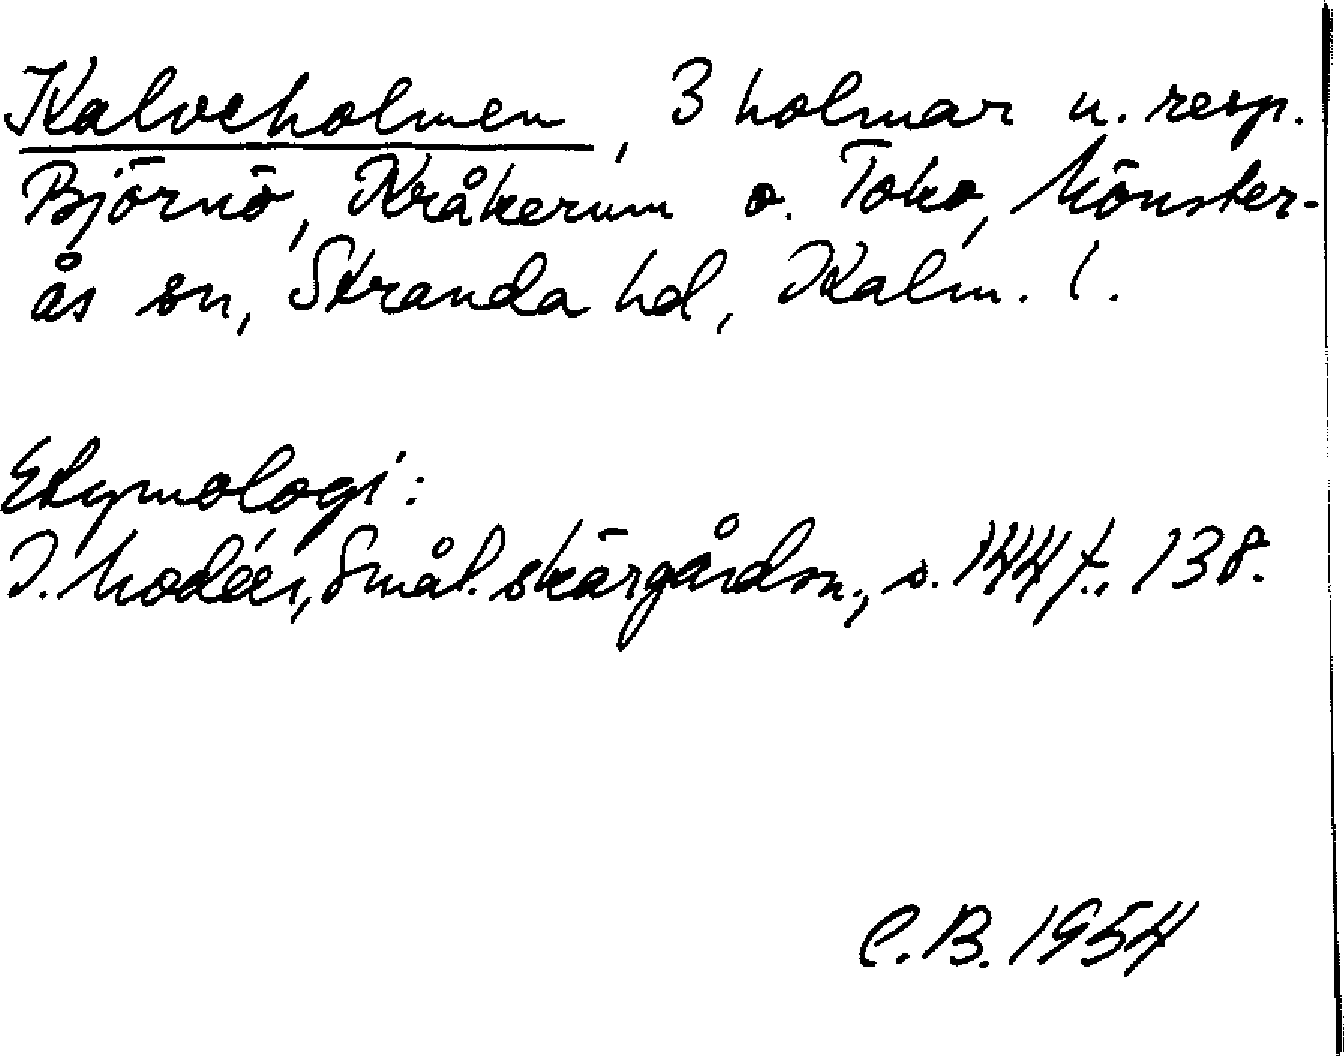 Kalveholmen, 3 holmar u. resp.
Björnö, Kråkerum o. Tokö, Mönster-
ås sn, Stranda hd, Kalm. l.
Etymologi:
I. Modéer, Smål. skärgårdsn., s. 144 f., 138.
C.B. 1954